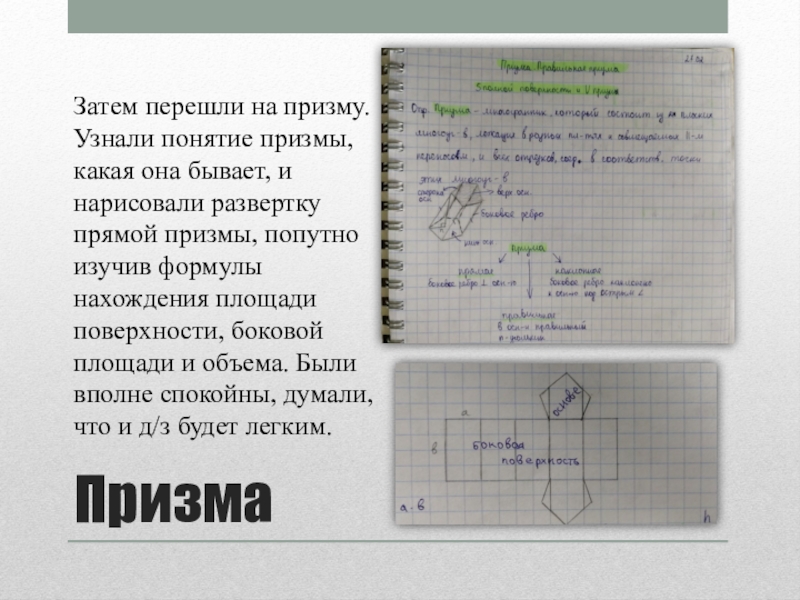 Затем перешли на призму.
Узнали понятие призмы,
какая она бывает, и
нарисовали развертку
прямой призмы, попутно
изучив формулы
нахождения площади
поверхности, боковой
площади и объема. Были
вполне спокойны, думали,
что и д/з будет легким.
Призма
Призма. Правильная призма
Sполной поверхности и V призмы
Опр. Призма - многогранник, который состоит из плоских
многоуг-в, лежащих в разных пл-тях и совмещаемых П-м
переносом, и всех отрезков, соед. в соответств. точки
этих многоуг-в
верх осн.
боковое ребро
Призма
прямая
наклонное
боковое ребро ⊥ осн-ю
боковое ребро наклонено
к осн-ю под острым ∠
правильное
в осн-и правильный
n-угольник
основе
a
в
боковоя
поверхность
a · в
h